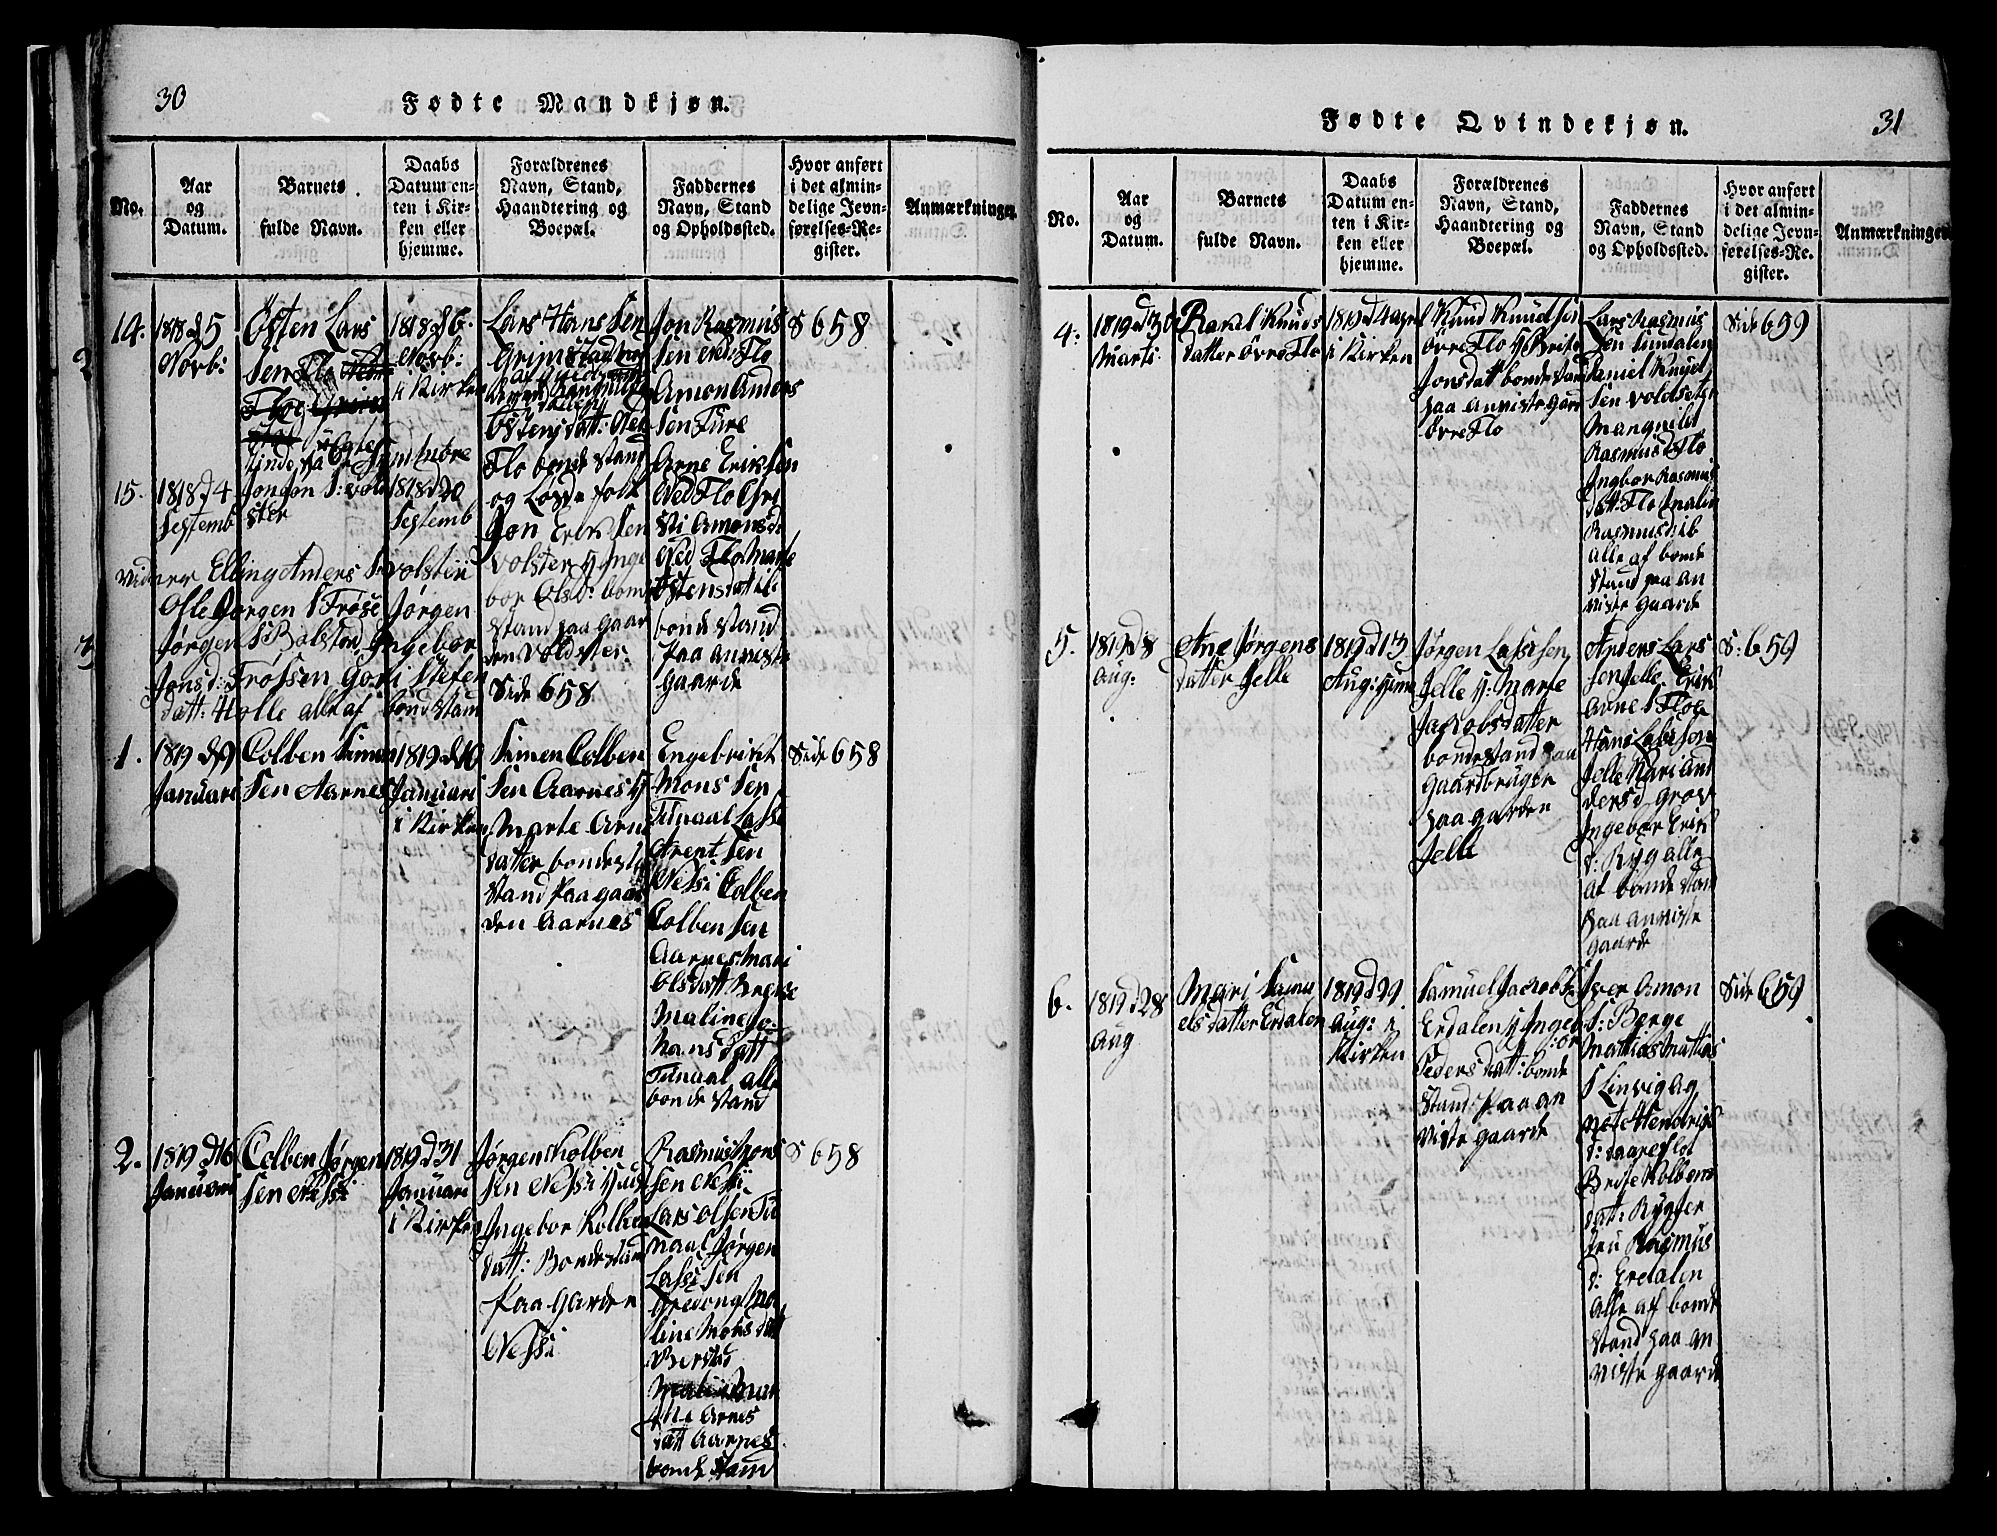 30
Fødte Mandkjøn.
No.
Aar
og
Datum.
Barnets
fulde Navn.
Daabs
Datum en-
ten i Kir-
ken eller
hjemme.
Forældrenes
Navn, Stand,
Haandtering og
Boepæl.
Faddernes
Navn, Stand
og Opholdssted.
Hvor anført
i det almin-
delige Jevn-
førelses-Re-
gister.
Anmærkninger
14.
1818 d 5
Novb:
Østen Lars
sen Flo
1818 d 6
Novb:
i Kirken
Lars Hans Sen
Grimstad
Østensdatt: Ned
Flo bonde stand
og Løsde folk
Jon Rasmus
sen Ned Flo
Amon Anders
sen Ture
Arne Erik Sen
Ned Flo Gri
sti Amonsd:
Ned Flo Marte
Østensdatt
bonde stand
paa anviste
gaarde
S 658
15.
1818 d 4
Septemb
Jon Jon S: vol
ster
1818 d 20
Septemb
Jon Erik Sen
volster H Inge
bor Ols d: bonde
stand paa gaar
den Voldster
Side 658
vidner Elling Anders S volsteii
Ole Jørgen S Frøse Jørgen
Jørgen S Bolstad Ingebor
Jons d: Frøssen Gori Stefen
datt: Holle alle af bond stand
1.
1819 d 9
Januari
Colben Simen
Sen Aarnes
1819 d 10
Januari
i Kirken
Simen Colben
Sen Aarnes H
Marte Arne
datter bonde
stand paa gaar
den Aarnes
Engebrikt
Mons Sen
Tunaal Lasse
Arent Sen
Nessi Colben
Colben Sen
Aarnes Mari
Olsdatt Brekke
Maline Jo
hans datt
Tunaal alle
bonde stand
Side 658
2.
1819 d 16
Januari
Colben Jørgen
Sen Nessi
1819 d 31
Januari
i Kirken
Jørgen Kolben
Sen Nessi
Ingebor Kolben
datt: Bondestand
paa Garden
Nessi
Rasmus Mons
Sen Nessi
Lars Olsen Tu
naal Jørgen
Lasse Sen
Ma
line Mons datt
Berstad
Arnes
datt Aarnes
bonde Stand
S 658
31
Fødte Qvindekjøn.
No.
Aar
og
Datum.
Barnets
fulde Navn.
Daabs
Datum en-
ten i Kir-
ken eller
hjemme.
Forældrenes
Navn, Stand,
Haandtering og
Boepæl.
Faddernes
Navn, Stand
og Opholdssted.
Hvor anført
i det almin-
delige Jevn-
førelses-Re-
gister.
Anmærkninger
4.
1819 d 30
Marti
Rakel Knuds
datter Øvre Flo
1819 d 4 apri
i Kirken
Knud Knudsen
Øvre Flo H Brite
Jonsdatt bonde stand
paa anviste gaar
Øvre Flo
Lars Rasmus
Sen Sundalen
Daniel Knud
Sen Voldsetr
Mangnild
Rasmus d Flo
Ingbor Rasmus
datt: Flo Malin
Rasmus d ib
alle af bonde
stand paa an
viste gaarde
Side 659
5.
1819 d 8
Aug:
Ane Jørgens
datter Jelle
1819 d 13
Aug: hjem
Jørgen Lassesen
Jelle H: Marte
Jacobsdatter
bondestand paa
gaardbruger
paa gaarden
Jelle
Anders Lars
sen Jelle Erik
Arne S Floe
Hans Labisen
Jelle Mari And
ders d Grov
Ingebor Erik
d: Ryg alle
af bonde stand
paa anviste
gaarde
S: 659
6.
1819 d 28
Aug
Mari Samu
els datter Erdalen
1819 d 29
Aug: i
Kirken
Samuel Jacob S:
Erdalen H Ingeb
:or
Peders datt: bonde
stand paa an
viste gaarde
Iver Amon
S: Berge
Mattias Mattias
S Linvig Ag
note Hendrigs
d: Aareflot
Brite Kolbens
datt: Ryg Jer
tru Rasmus
d: Erdalen
alle af bonde
stand paa an
viste gaarde
Side 659